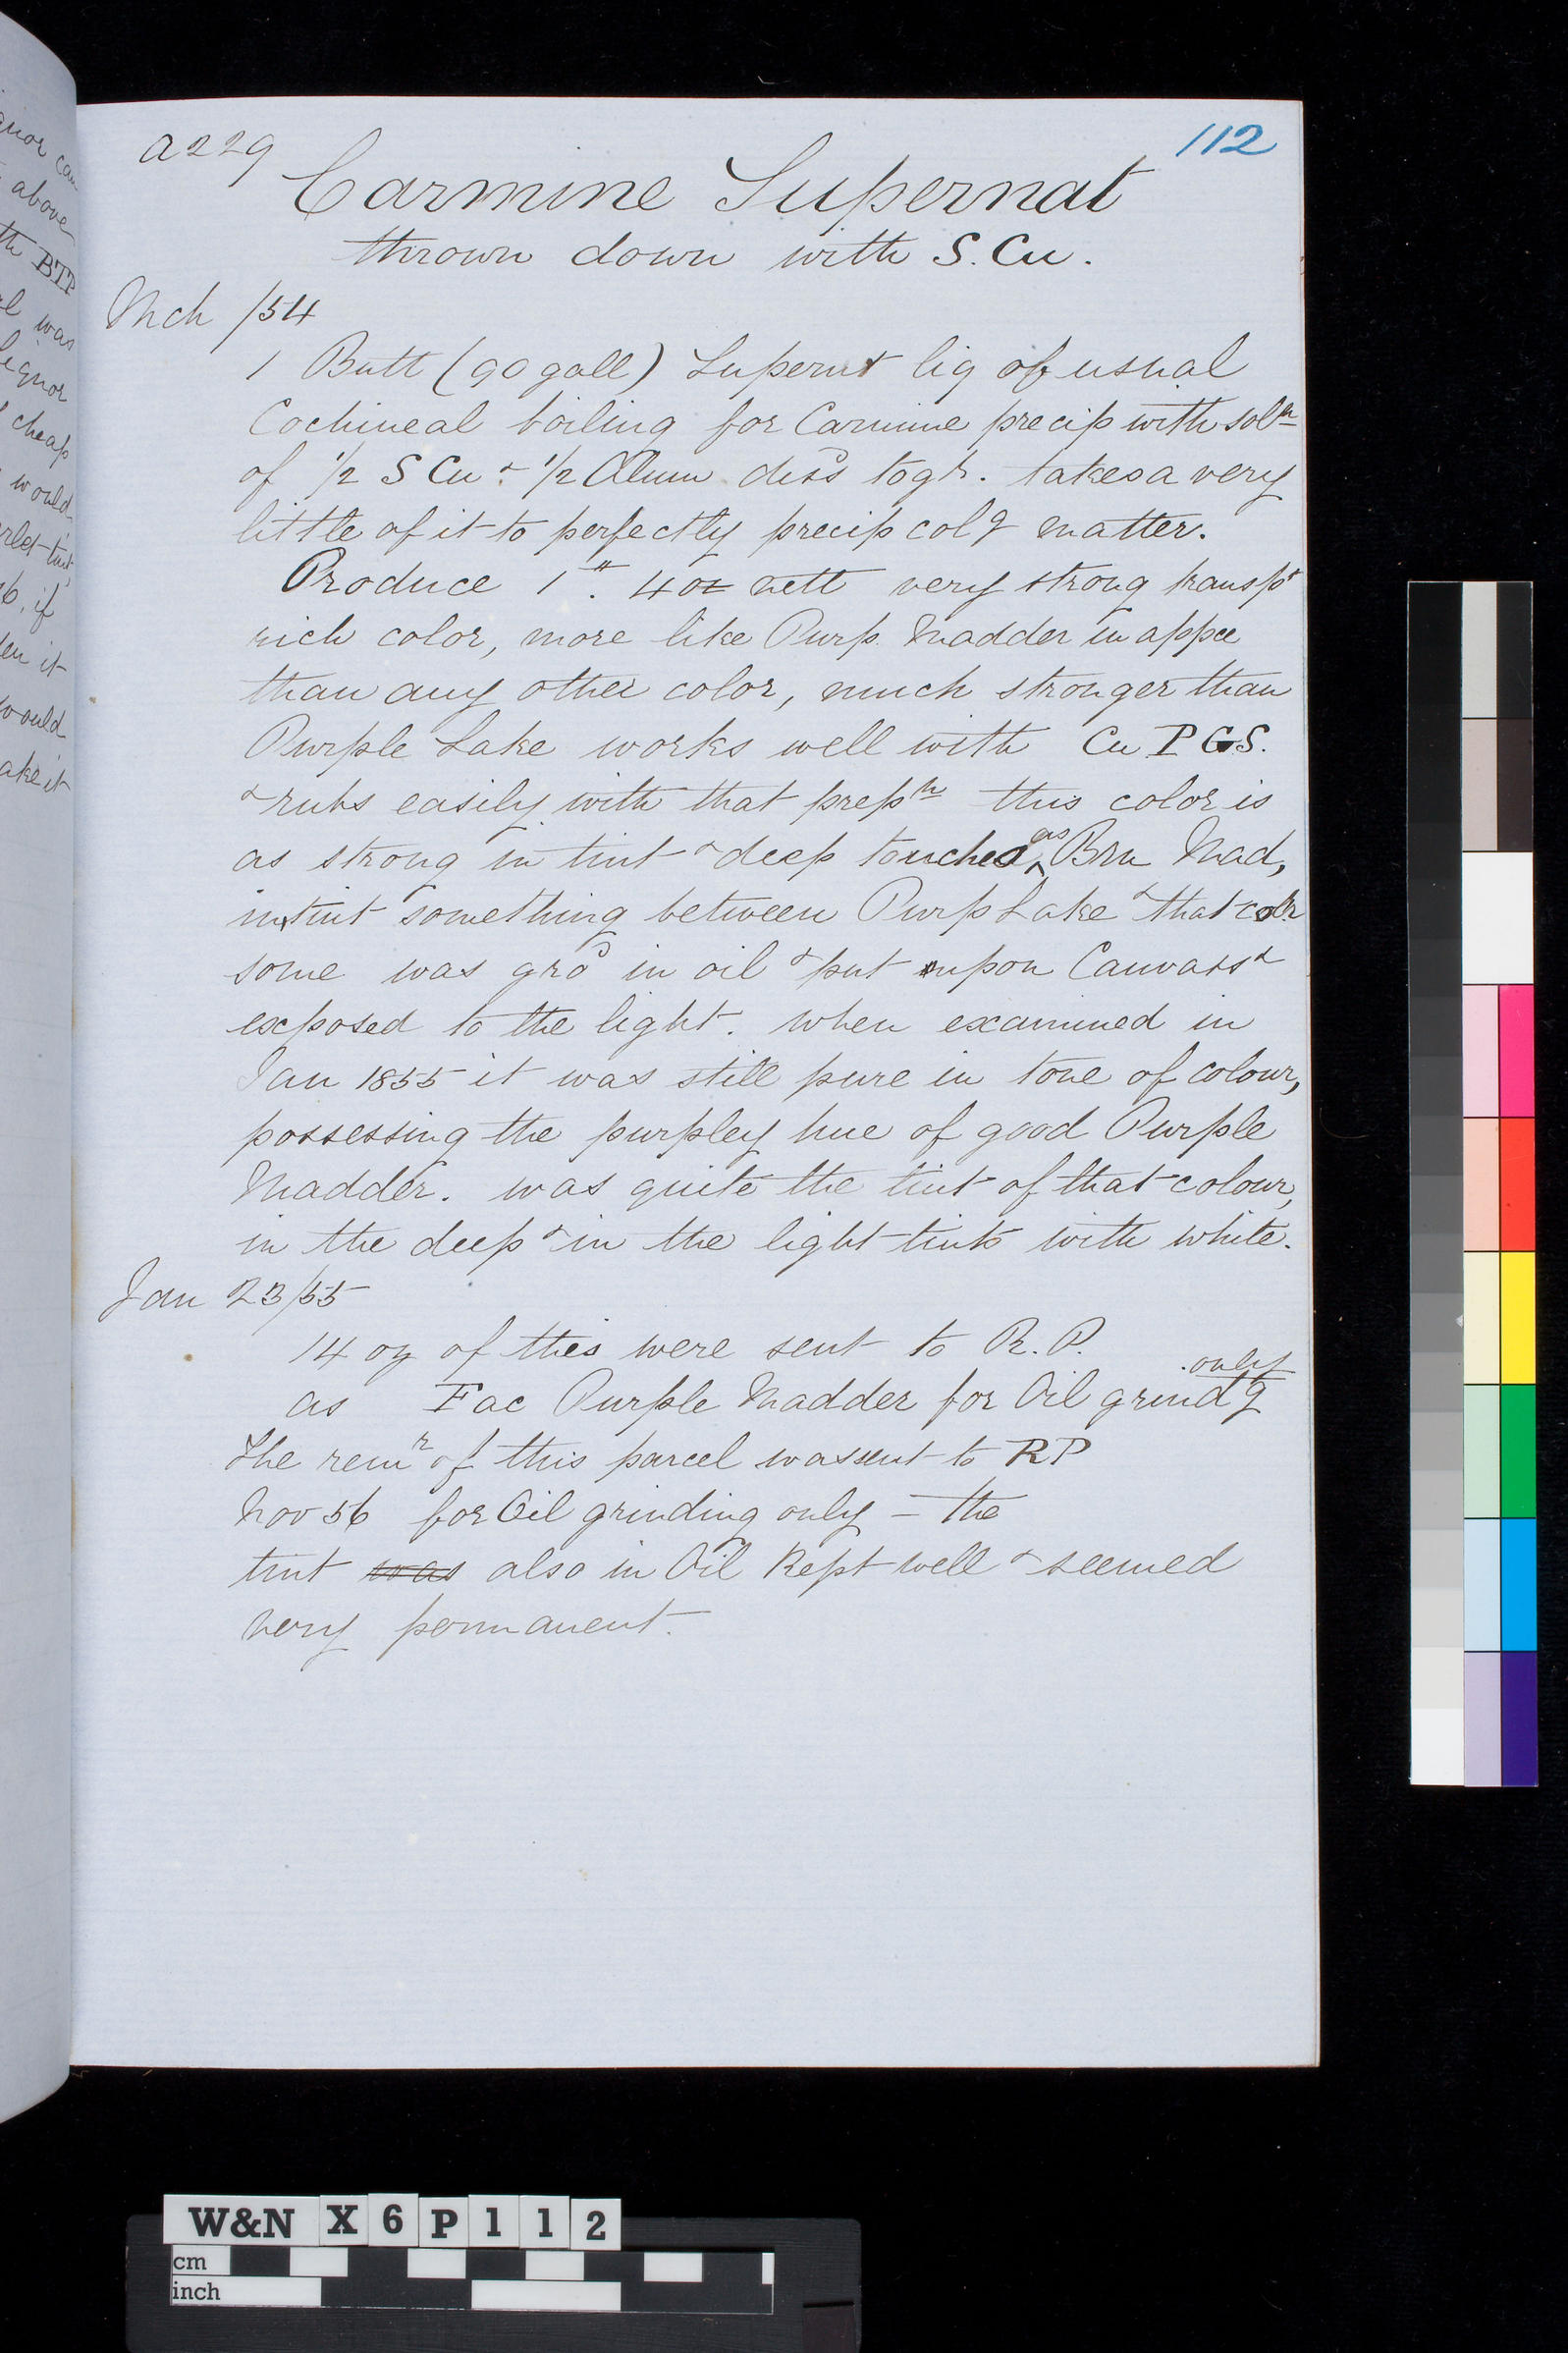 a229
112
Carmine Supernat
thrown down with S.Cu.
Mch /54
1 Butt (90 gall) Supernt liq of usual
Cochineal boiling for Carmine precip with solⁿ
of ½ S Cu & ½ Alum dissᵈ togʳ. takes a very
little of it to perfectly precip colᵍ matter.
Produce 1". 4 oz nett very strong transpᵗ
rich color, more like Purp. Madder in appce
than any other color, much stronger than
Purple Lake works well with Cu P GS.
& rubs easily with that prepⁿ this color is
as strong in tint & deep touches as Brn Mad,
in tint something between Purp Lake & that colr
some was grᵈ in oil & put upon Canvass &
exposed to the light. when examined in
Jan 1855 it was still pure in tone of colour,
possessing the purpley hue of good Purple
Madder. was quite the tint of that colour,
in the deep & in the light tints with white.
Jan 23/55
14 oz of this were sent to R.P.
as Fac Purple Madder for Oil grindᵍ only
The remʳ of this parcel was sent to RP
Nov 56 for Oil grinding only – the
tint was also in Oil Kept well & seemed
very permanent.
quor
above
th BTP
was
liquor
cheap
would
tint
6, if
it
would
ake it
W&N X 6 P 1 1 2
cm
inch